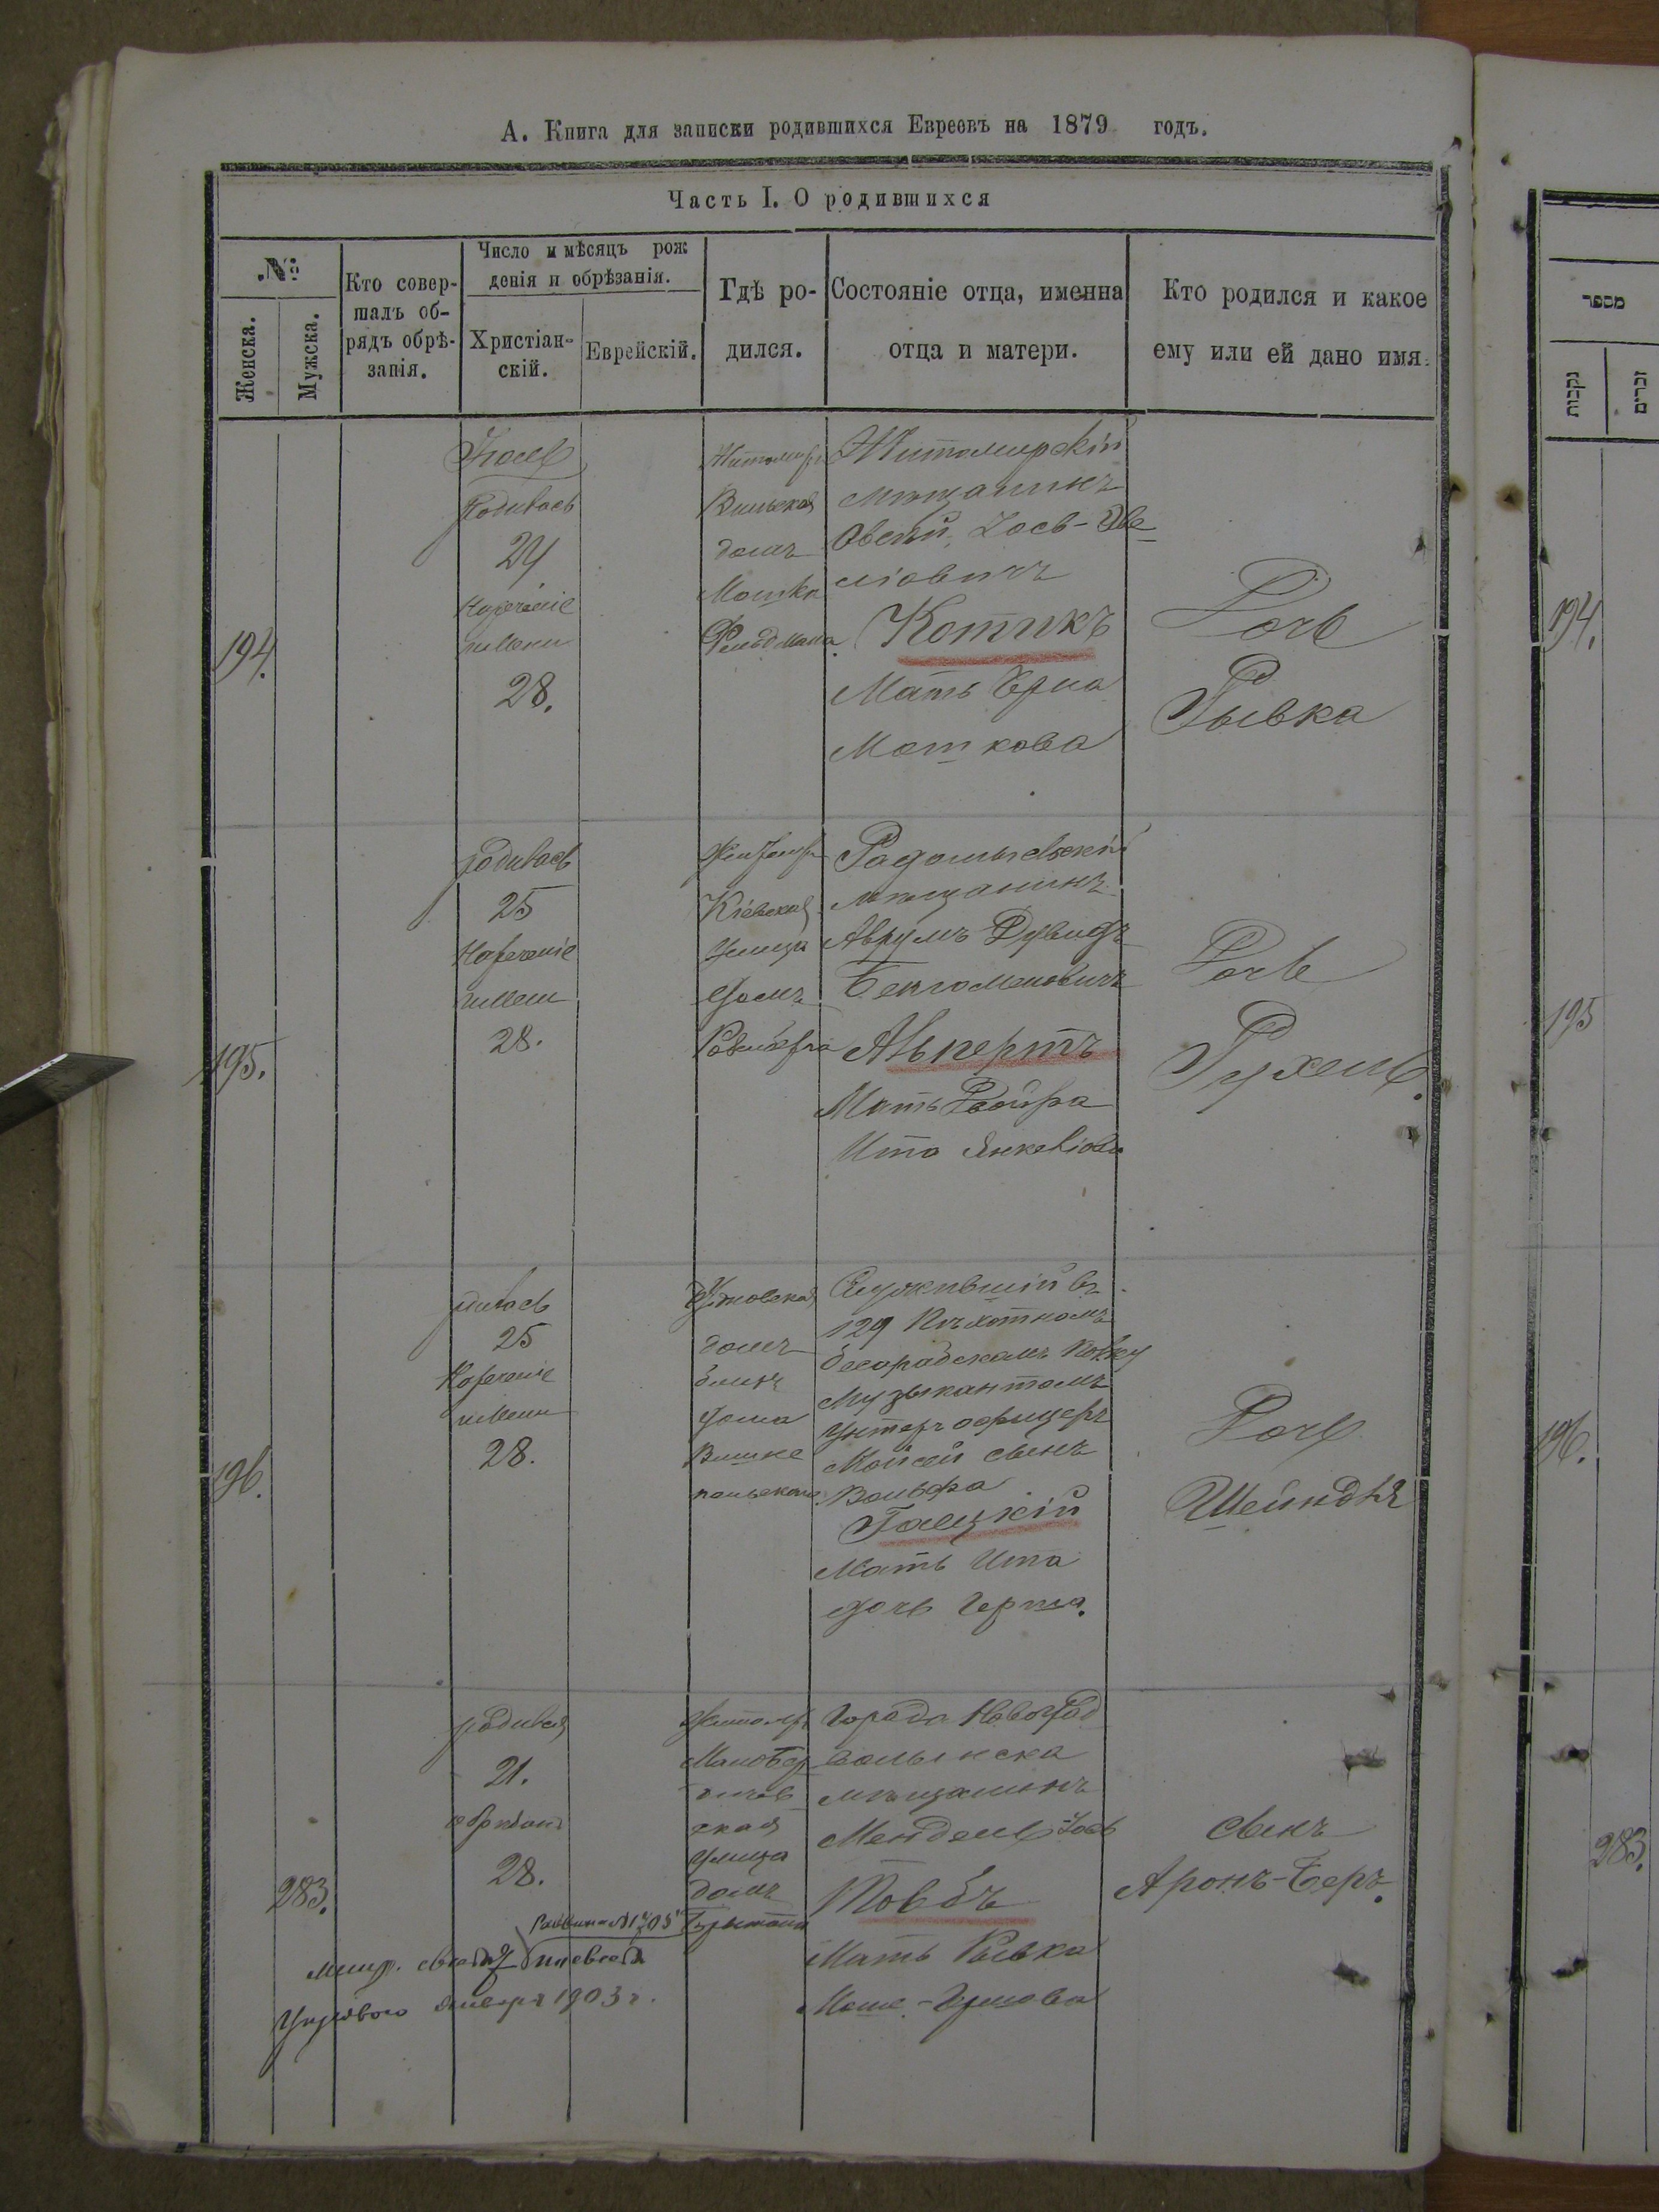 А. Книга для записки родившихся Евреевъ на 1879 годъ.
Часть I. О родившихся
№
Женска.
Мужска.
Кто совер-
шалъ об-
рядъ обрѣ-
занія.
Число и мѣсяцъ рож
денія и обрѣзанія.
Христіан-
скій.
Еврейскій.
Гдѣ ро-
дился.
Состояніе отца, именна
отца и матери.
Кто родился и какое
ему или ей дано имя.
194.
Родилась
24
Нареченіе
имени
28.
Житомиръ
Вильская
домъ
Мошка
Фельдмана
Житомирскій
мѣщанинъ
Овсей Іось-
Котикъ
Мать Черна
Мошкова
Дочь
Рывка
195.
родилась
25
Нареченіе
имени
28.
Житомиръ
Кіевская
улица
домъ
Радомысльскій
мѣщанинъ
Аврумъ Дувидъ
Альпертъ
Мать
Ита Янкелiова
Дочь
Рухель.
196.
25
Нареченіе
имени
28.
Чудновская
домъ
близъ
дома
Служившій въ
129 Пѣхотномъ
полку
Музыкантомъ
Унтеръ офицеръ
Мойсей сынъ
Вольфа
Гаецкій
Мать Ита
дочь Герша.
Дочь
Шейндля
283.
родился
21.
обрѣзанъ
28.
Житомиръ
Малобер
дичев
ская
улица
домъ
Города Новоград
волынска
мѣщанинъ
Мендель Іось
Товбъ
Мать Рывка
Мошe-Гершова
сынъ
Аронъ-Беръ.
января 1903 г.
מספר
נקבות
זכרים
194.
195
196.
283.